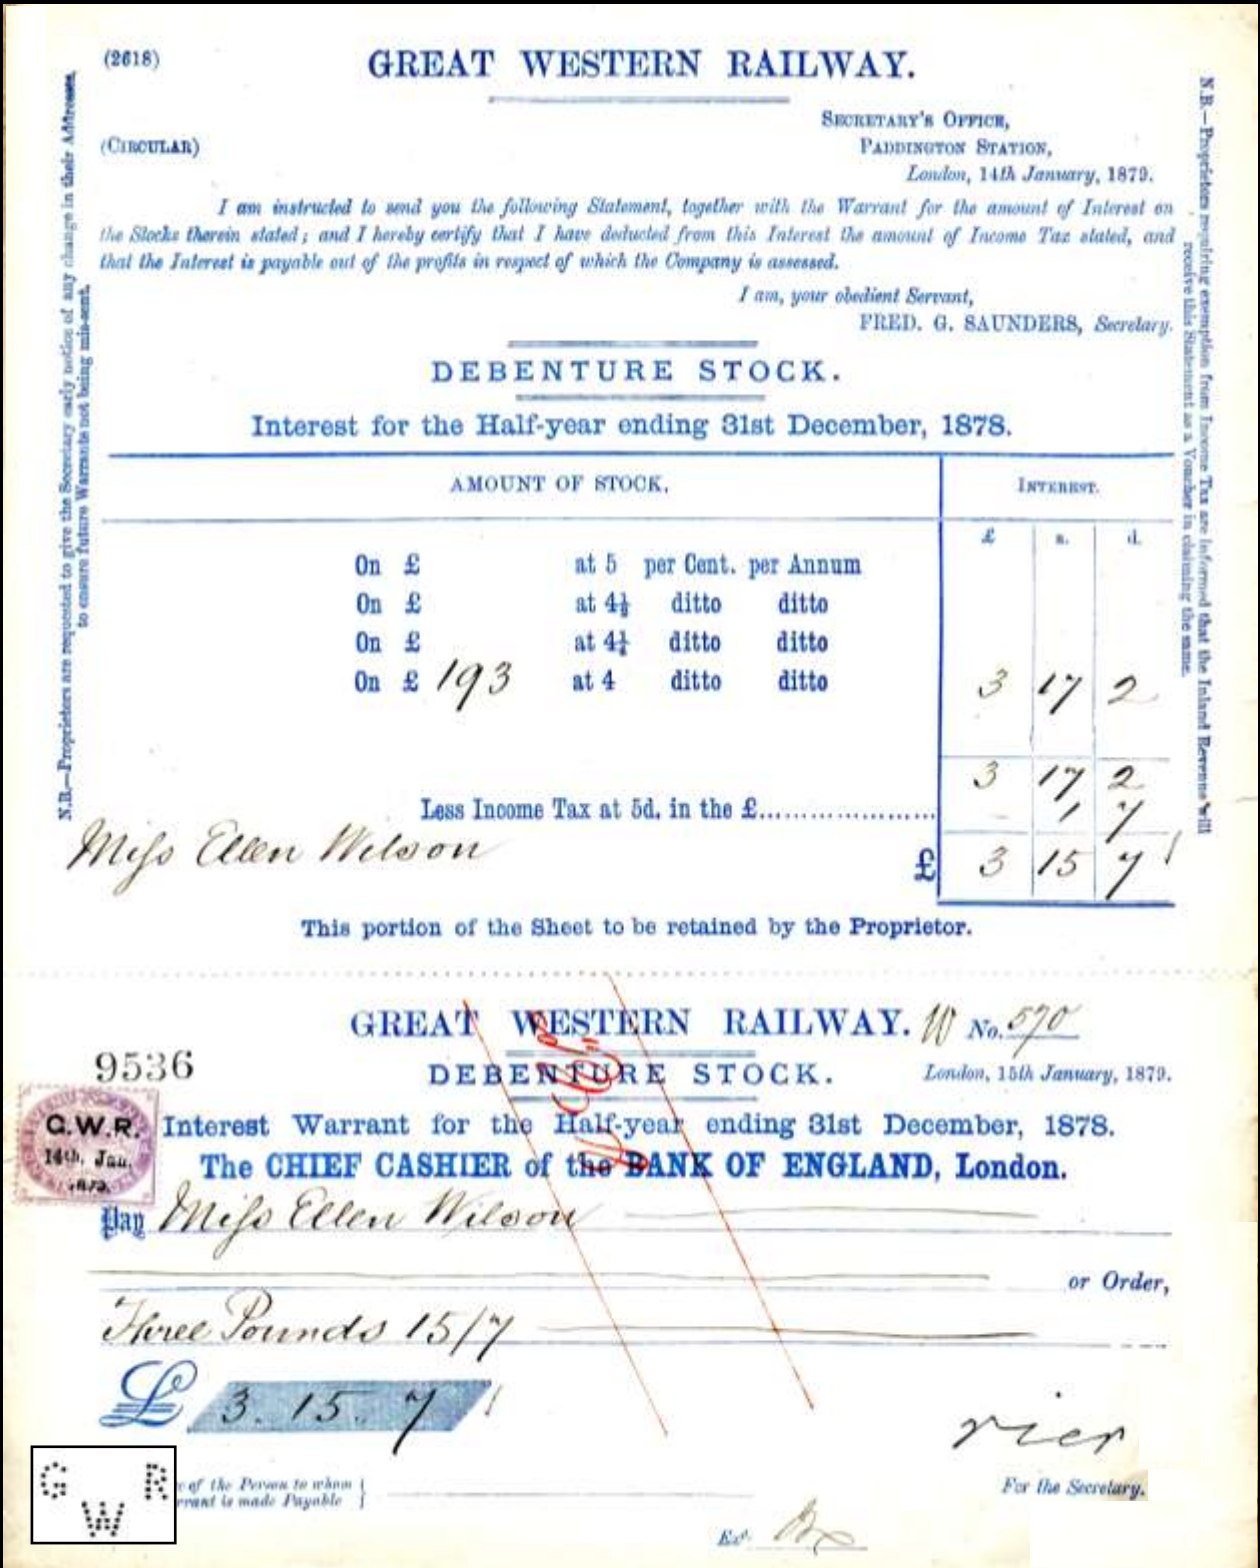 (2618)
GREAT WESTERN RAILWAY.
SECRETARY'S OFFICE,
(CIRCULAR)
PADDINGTON STATION,
London, 14th January, 1879.
I am instructed to send you the following Statement, together with the Warrant for the amount of Interest on
the Stocks therein stated; and I hereby certify that I have deducted from this Interest the amount of Income Tax stated, and
that the Interest is payable out of the profits in respect of which the Company is assessed.
I am, your obedient Servant,
FRED. G. SAUNDERS, Secretary.
N.B.—Proprietors are requested to give the Secretary early notice of any change in their Addresses,
to ensure future Warrants not being mis-sent.
N.B.—Proprietors requiring exemption from Income Tax are informed that the Inland Revenue will
receive this Statement as a Voucher in claiming the same.
DEBENTURE STOCK.
Interest for the Half-year ending 31st December, 1878.
AMOUNT OF STOCK. INTEREST.
£ s. d.
On £ at 5 per Cent. per Annum
On £ at 4½ ditto ditto
On £ at 4¼ ditto ditto
On £ 193 at 4 ditto ditto 3 17 2
3 17 2
Less Income Tax at 5d. in the £.................... 1 7
Miss Ellen Wilson
£ 3 15 7
This portion of the Sheet to be retained by the Proprietor.
GREAT WESTERN RAILWAY. W No. 570
9536
DEBENTURE STOCK. London, 15th January, 1879.
G.W.R.
14th. Jan.
1879.
Interest Warrant for the Half-year ending 31st December, 1878.
The CHIEF CASHIER of the BANK OF ENGLAND, London.
Pay Miss Ellen Wilson
or Order,
Three Pounds 15/7
£ 3. 15. 7
For the Secretary.
of the Person to whom
rrant is made Payable
Exd.
G W R